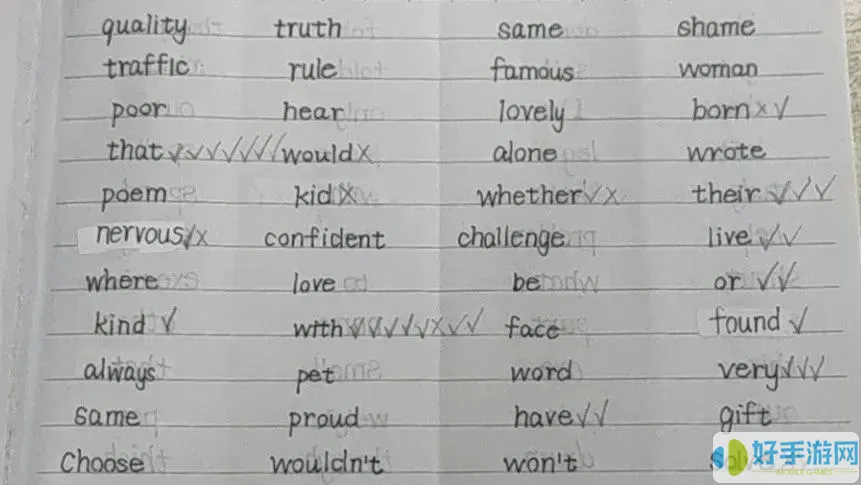 quality truth same shame
traffic rule famous woman
poor hear lovely born x ✓
that ✓✓✓✓✓✓ would x alone wrote
poem kid x whether ✓ x their ✓✓✓
nervous ✓x confident challenge live ✓✓
where love be or ✓✓
kind ✓ with ✓✓✓✓✓x✓✓ face found ✓
always pet word very ✓✓✓
same proud have ✓✓ gift
Choose wouldn't won't
好手游网
MOBILE GAMES